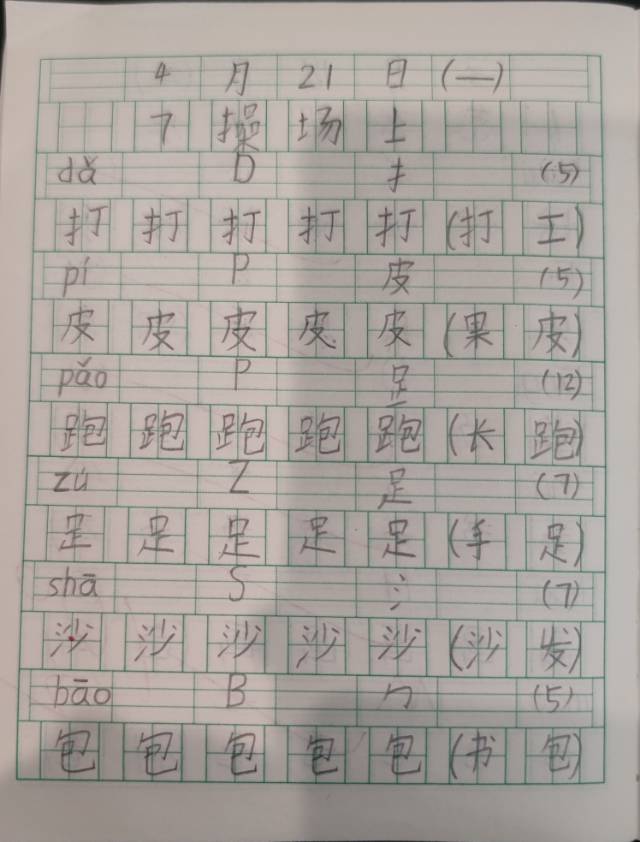 4 月 21 日 (一)
7 操 场 上
dǎ D 扌 (5)
打 打 打 打 打 (打 工)
pí P 皮 (5)
皮 皮 皮 皮 皮 (果 皮)
pǎo P 𧾷 (12)
跑 跑 跑 跑 跑 (长 跑)
zú Z 足 (7)
足 足 足 足 足 (手 足)
shā S 氵 (7)
沙 沙 沙 沙 沙 (沙 发)
bāo B 勹 (5)
包 包 包 包 包 (书 包)